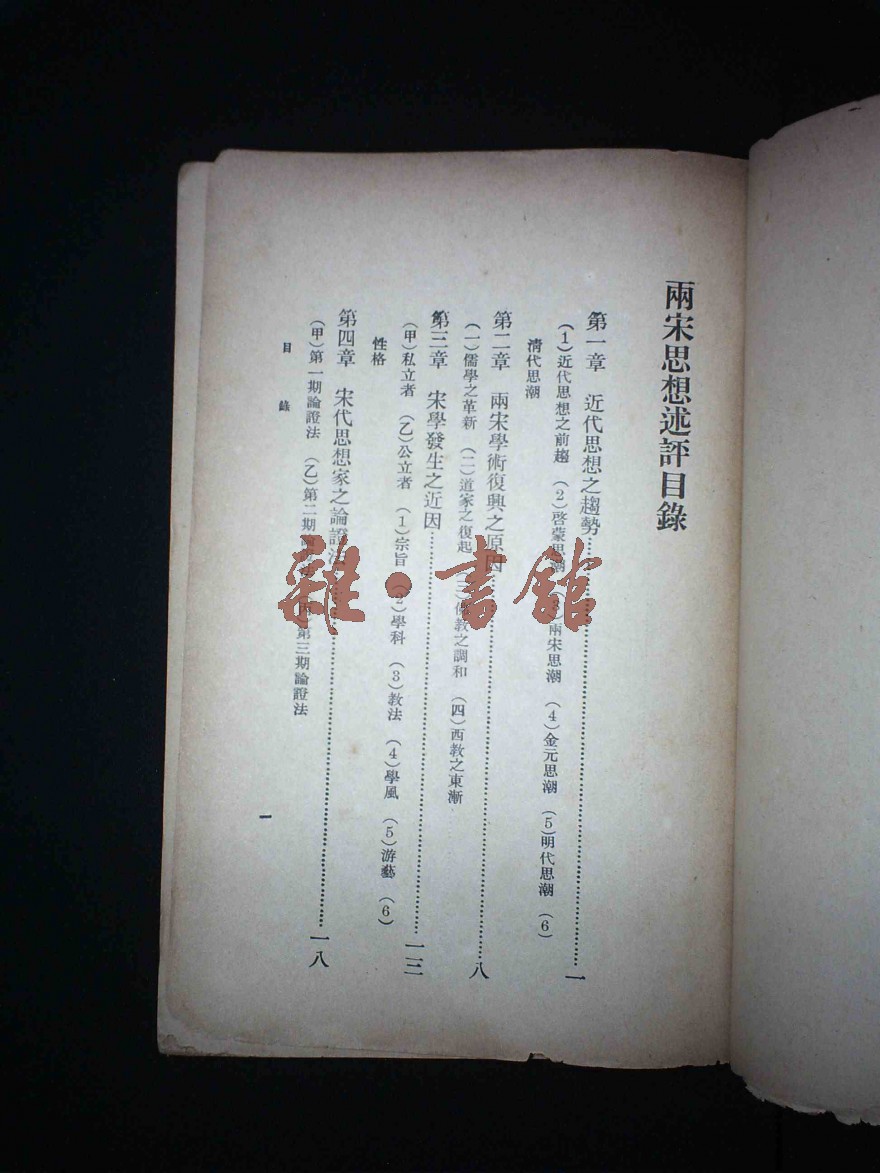 兩宋思想述評目錄
第一章　近代思想之趨勢……一
（1）近代思想之前趨　（2）啓蒙思潮　（3）兩宋思潮　（4）金元思潮　（5）明代思潮　（6）
清代思潮
第二章　兩宋學術復興之原因……八
（一）儒學之革新　（二）道家之復起　（三）佛教之調和　（四）西教之東漸
第三章　宋學發生之近因……一三
（甲）私立者　（乙）公立者　（1）宗旨　（2）學科　（3）教法　（4）學風　（5）游藝　（6）
性格
第四章　宋代思想家之論證法……一八
（甲）第一期論證法　（乙）第二期論證法　（丙）第三期論證法
目錄
一
雜·書館